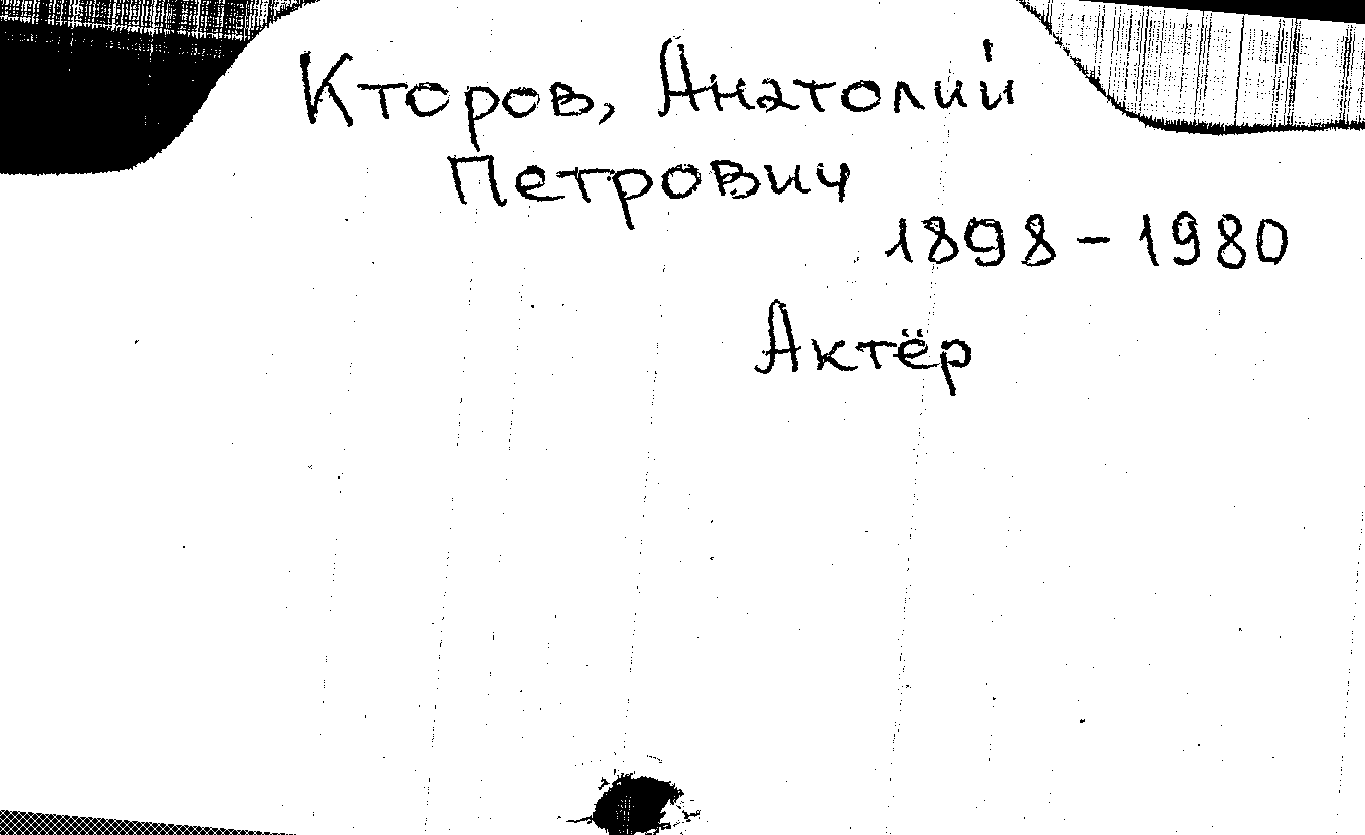 Кторов, Анатолий
Петрович
1898 - 1980
Актёр